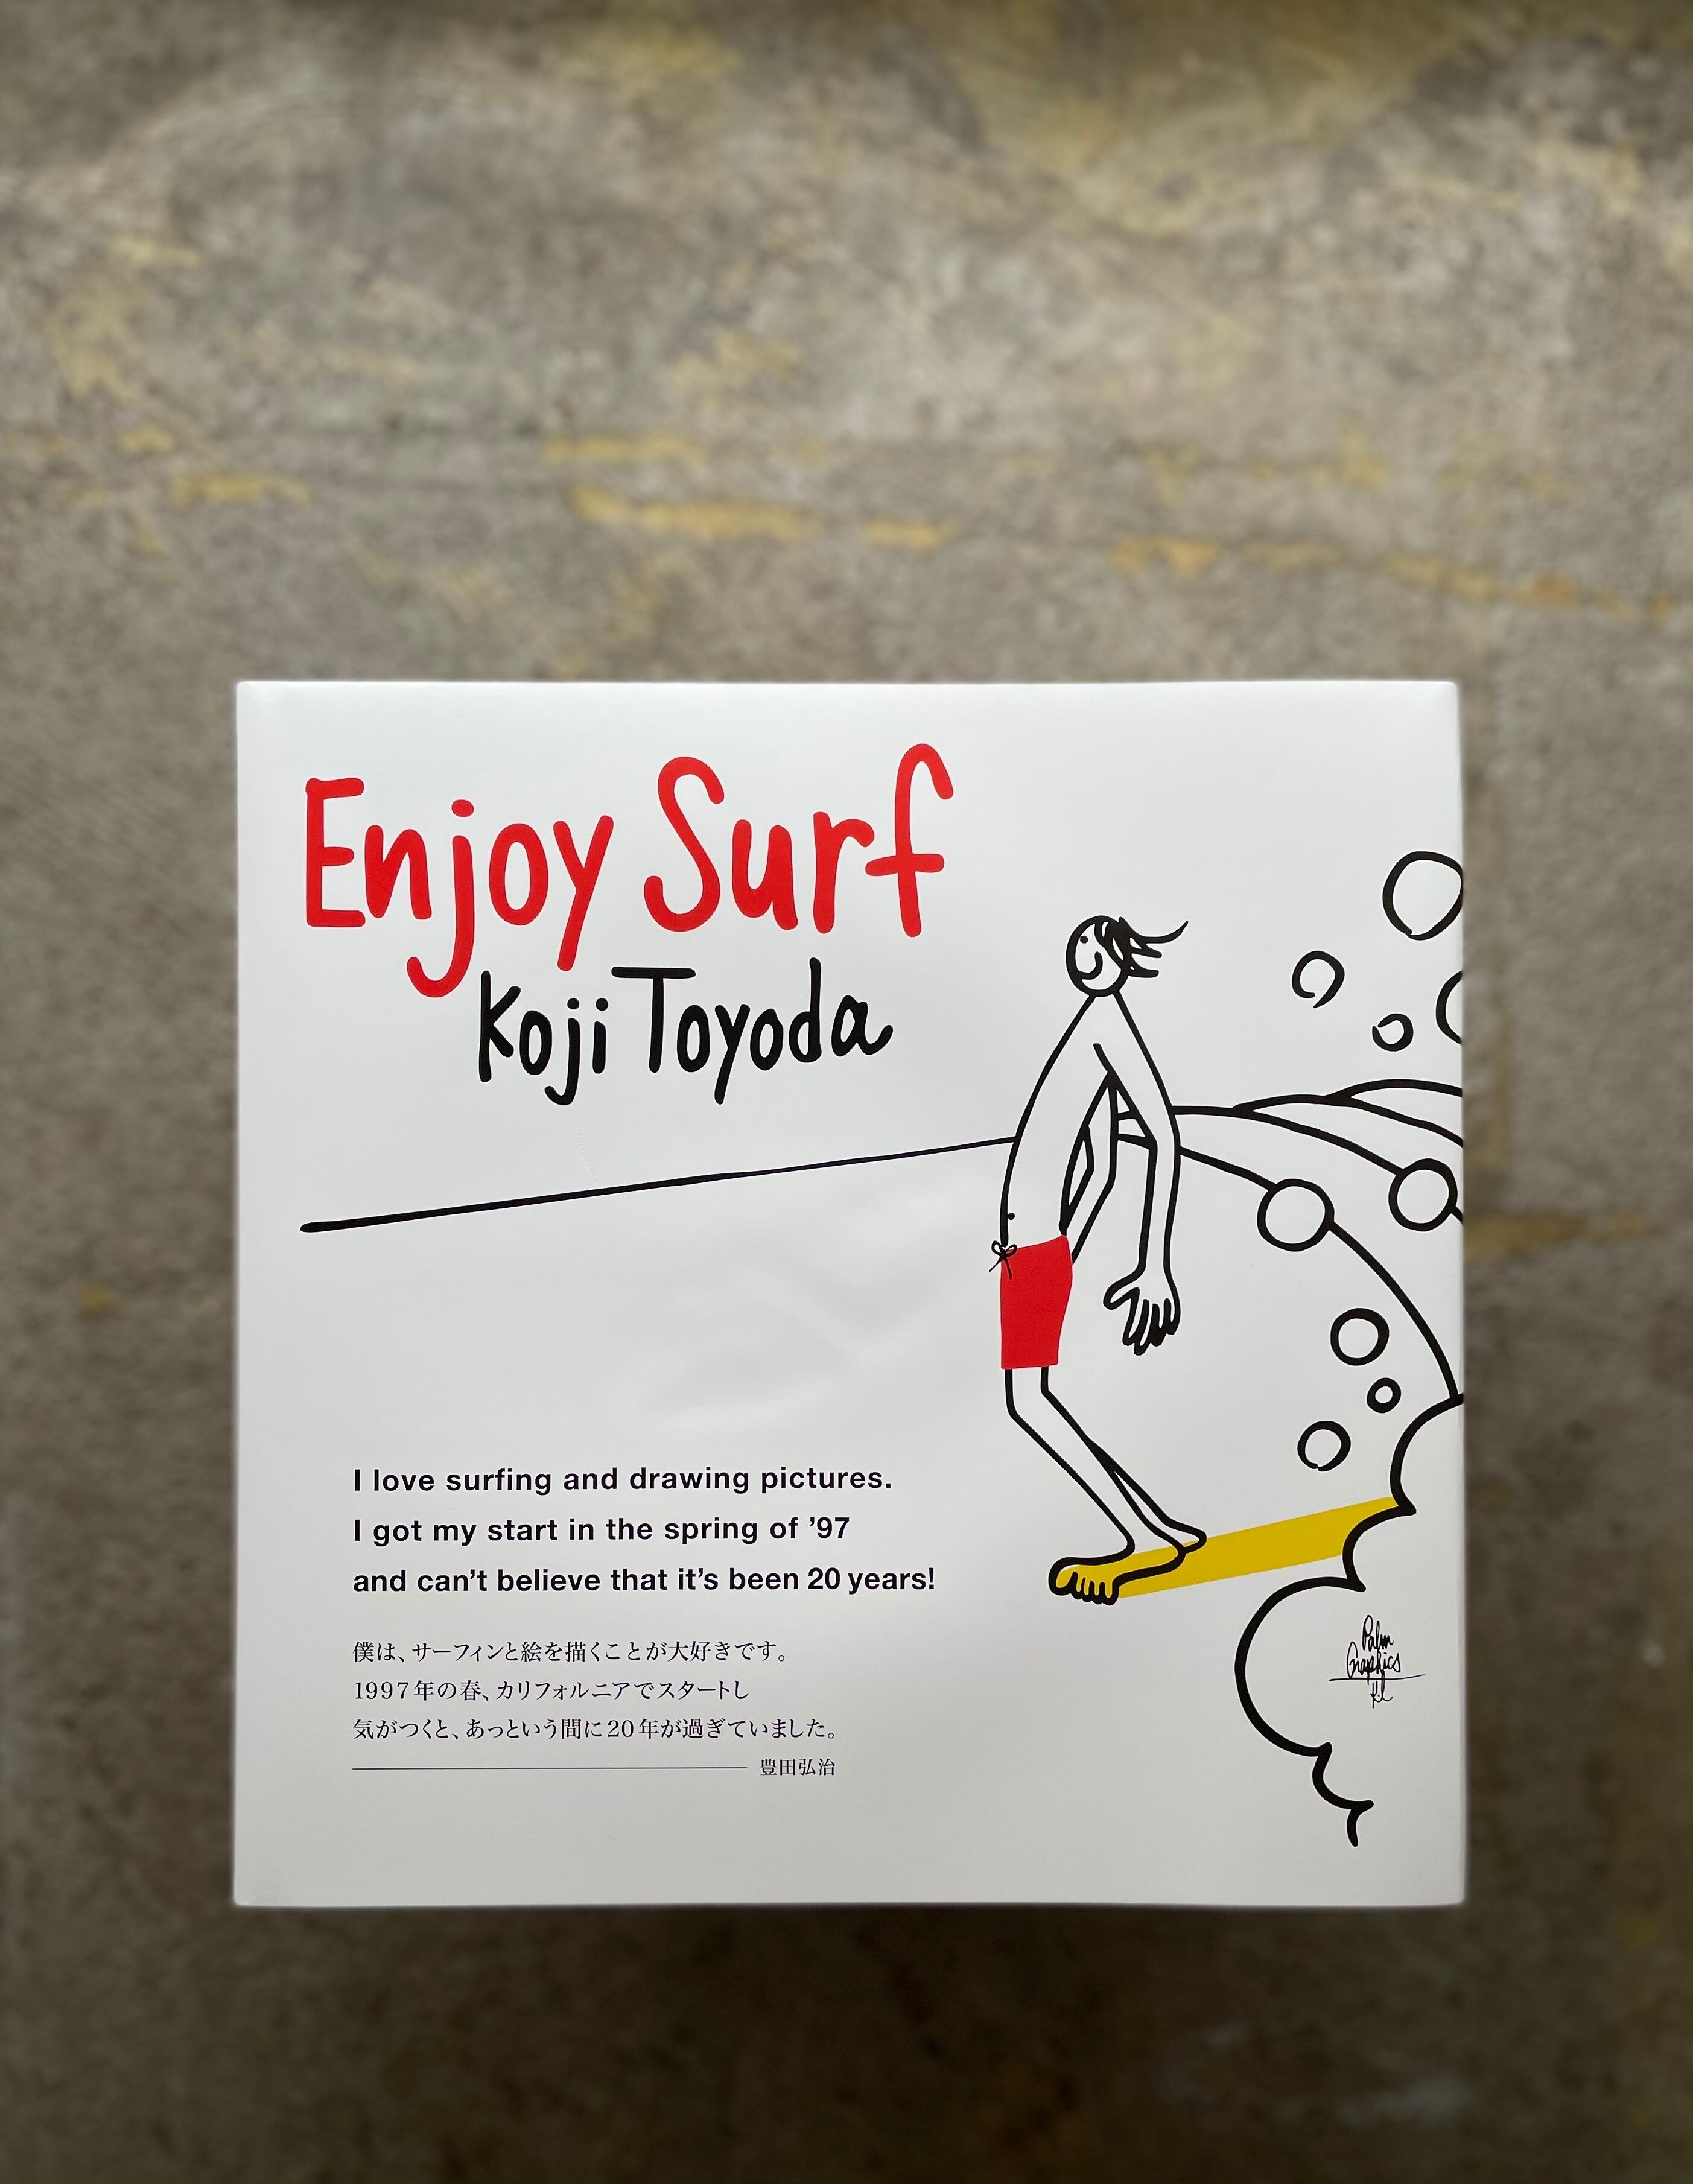 Enjoy Surf
Koji Toyoda
I love surfing and drawing pictures.
I got my start in the spring of ’97
and can’t believe that it’s been 20 years!
僕は、サーフィンと絵を描くことが大好きです。
1997年の春、カリフォルニアでスタートし
気がつくと、あっという間に20年が過ぎていました。
豊田弘治
Palm
Graphics